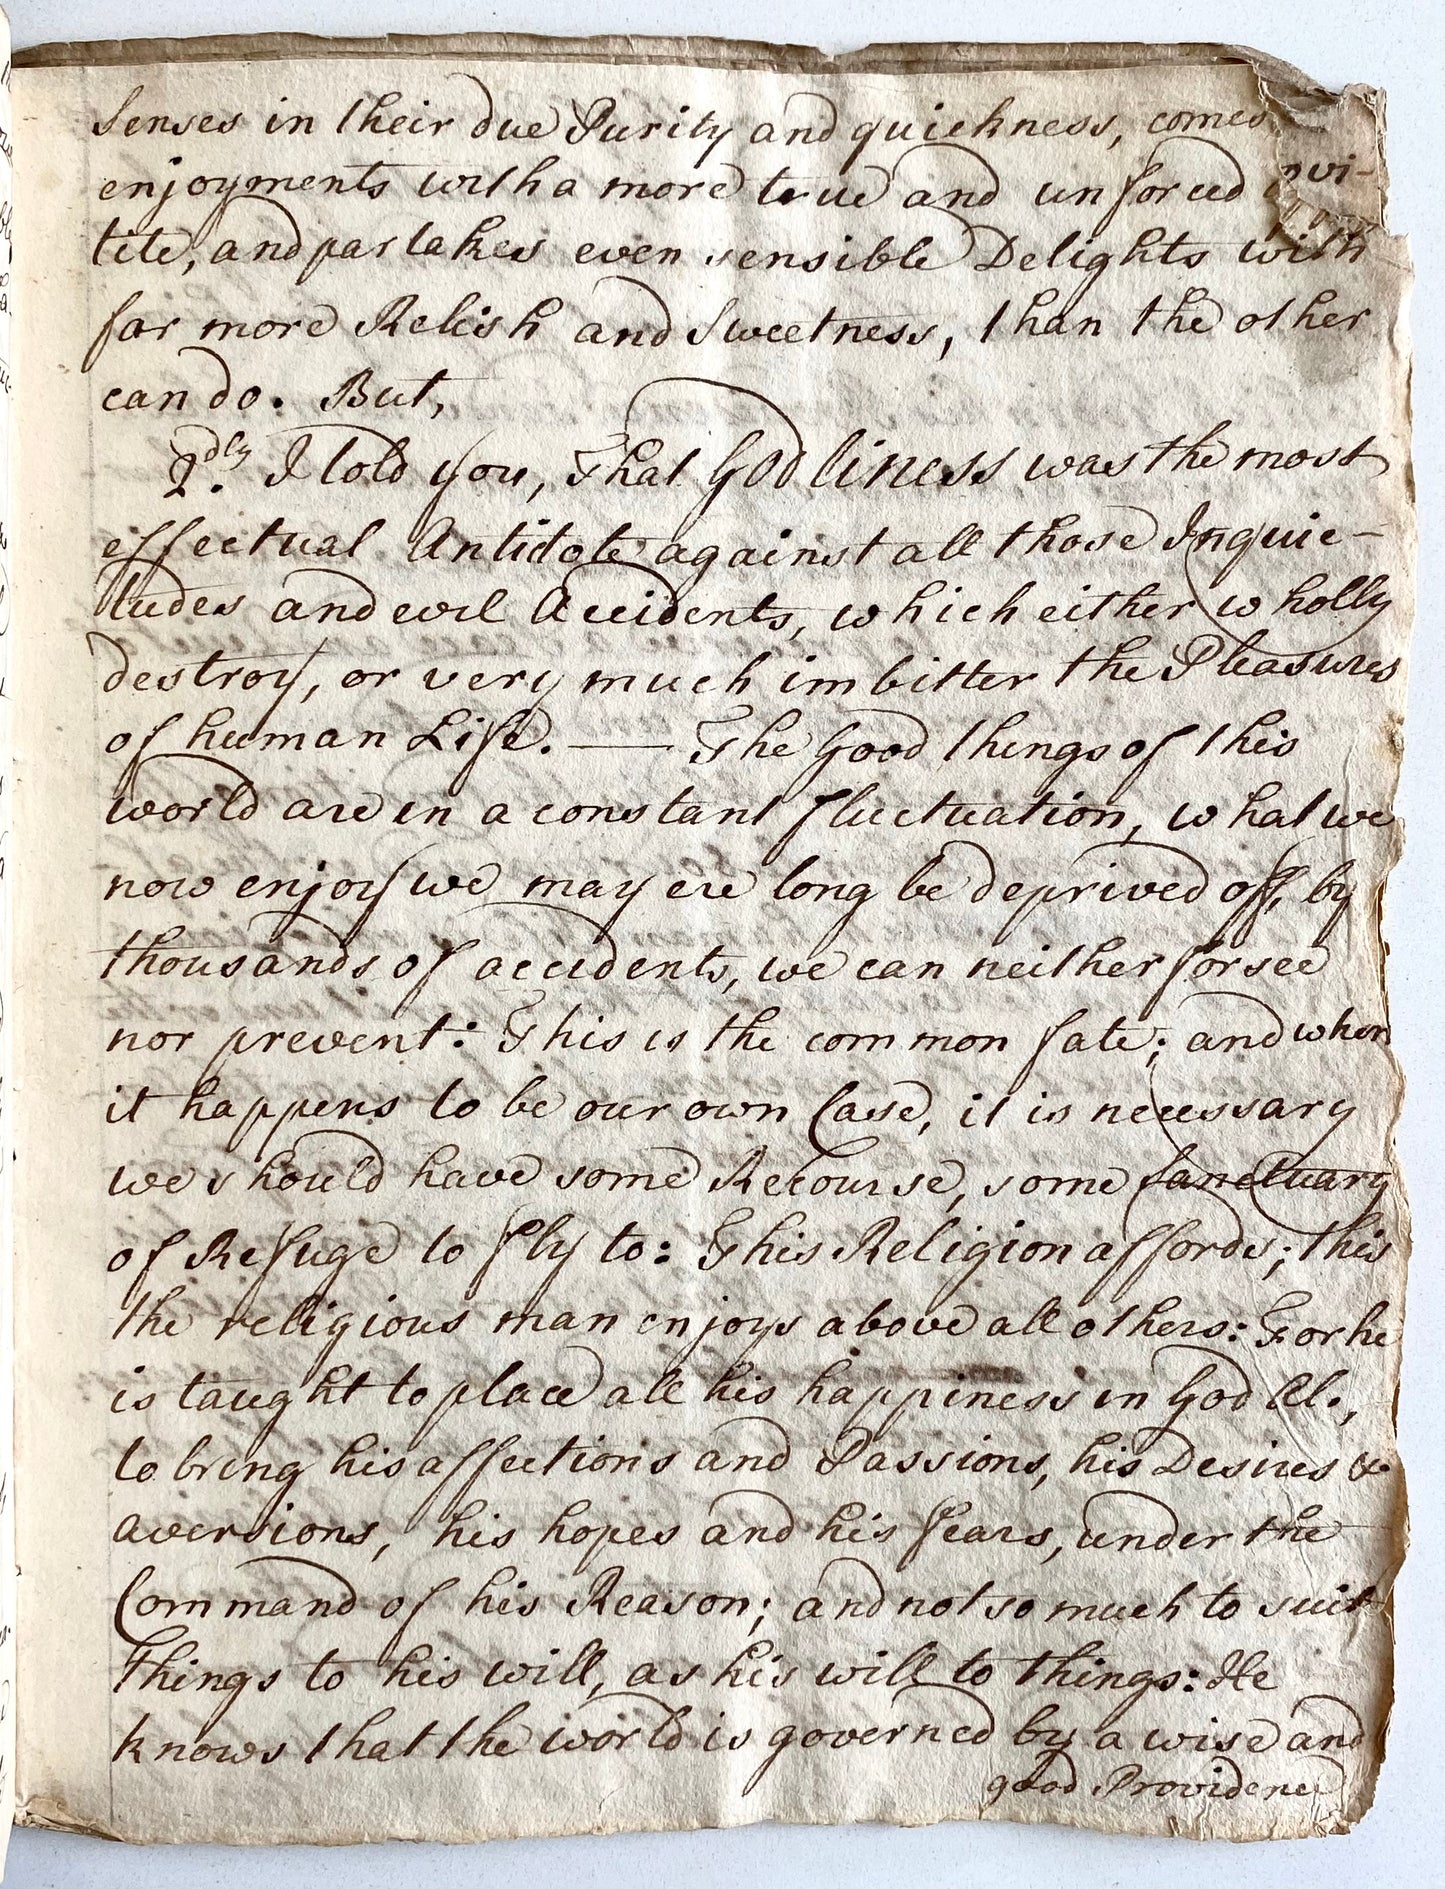 Senses in their due Purity and quickness, comes
enjoyments with a more true and unforced
tite, and partakes even sensible Delights with
far more Relish and Sweetness, than the other
can do. But,
2dly. I told you, That Godliness was the most
effectual Antidote against all those Inquie-
tudes and evil Accidents, which either wholly
destroy, or very much imbitter the Pleasures
of human Life. — The Good things of this
world are in a constant fluctuation, what we
now enjoy we may ere long be deprived off, by
thousands of accidents, we can neither forsee
nor prevent: This is the common fate; and when
it happens to be our own Case, it is necessary
we should have some Recourse, some Sanctuary
of Refuge to fly to: This Religion affords; this
the religious man enjoys above all others: For he
is taught to place all his happiness in God Al.,
to bring his affections and Passions, his Desires &
aversions, his hopes and his fears, under the
Command of his Reason; and not so much to suit
Things to his will, as his will to things: He
knows that the world is governed by a wise and
good Providence